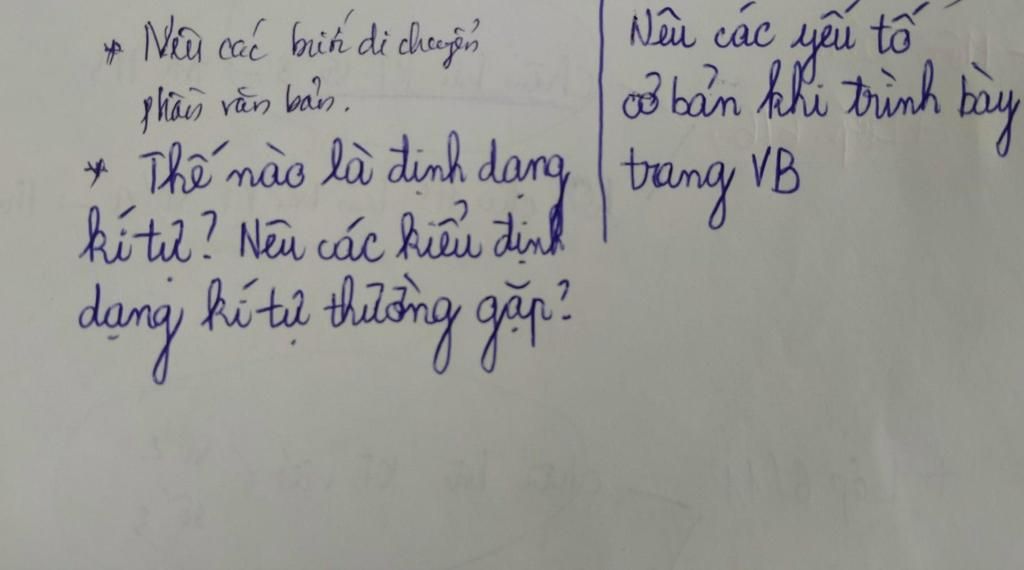 * Nêu các bước di chuyển
phần văn bản.
* Thế nào là định dạng
kí tự? Nêu các kiểu định
dạng kí tự thường gặp?
Nêu các yếu tố
cơ bản khi trình bày
trang VB